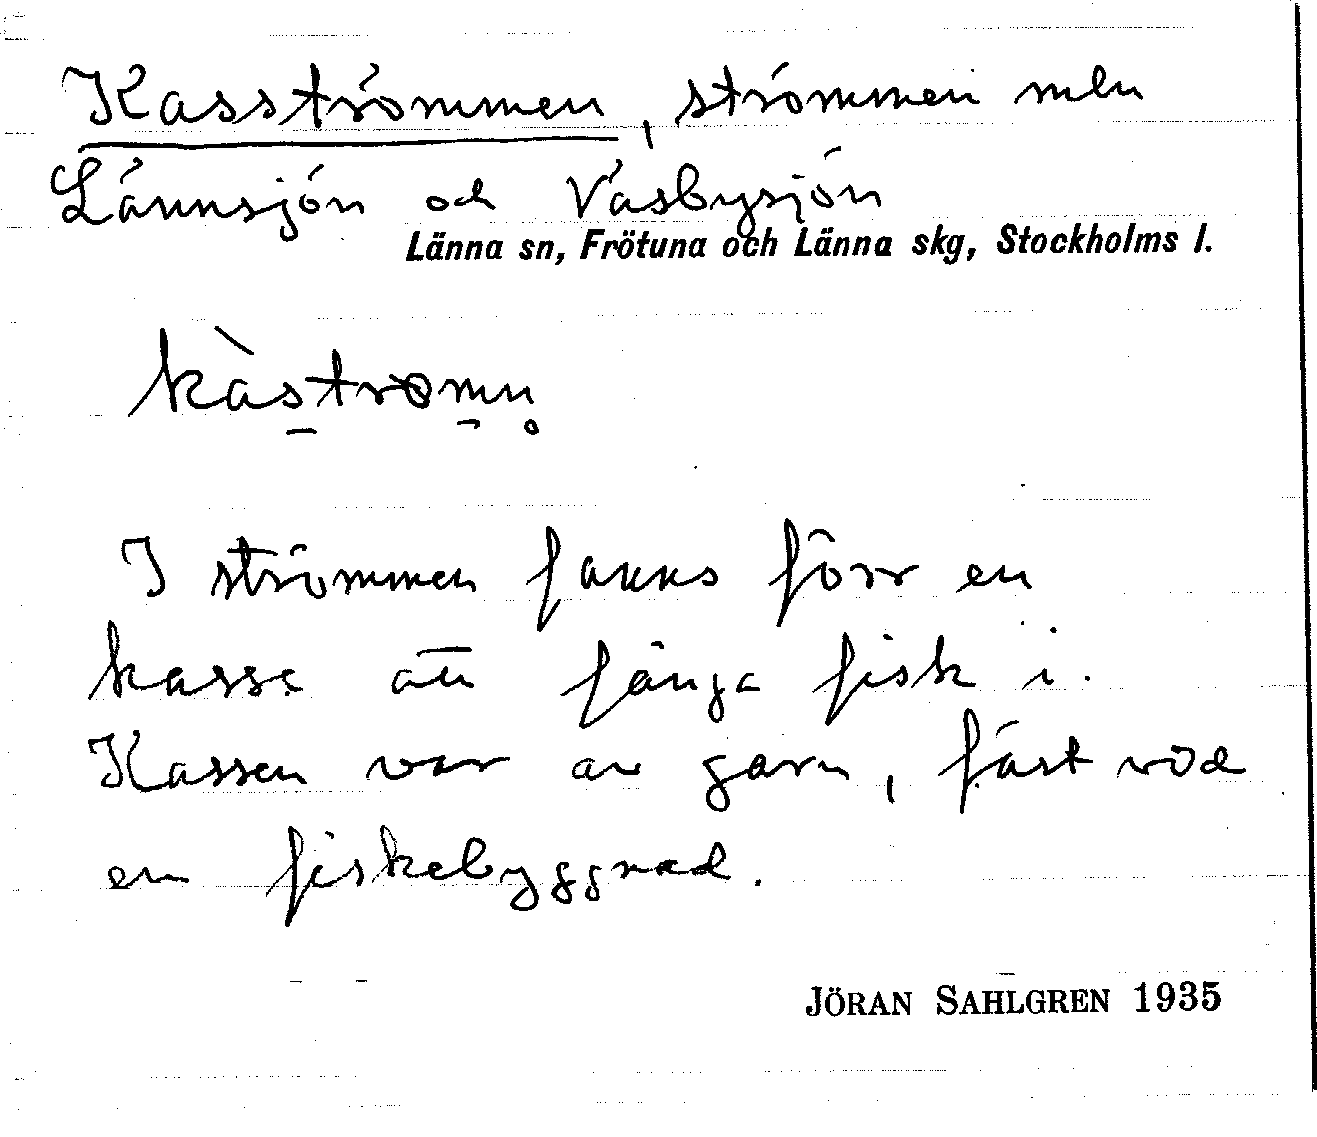 Kasströmmen, strömmen mln
Lännsjön och Väsbysjön
Länna sn, Frötuna och Länna skg, Stockholms l.
kàstromn̥
I strömmen fanns förr en
kasse att fånga fisk i.
Kassen var av garn, fäst vid
en fiskebyggnad.
JÖRAN SAHLGREN 1935